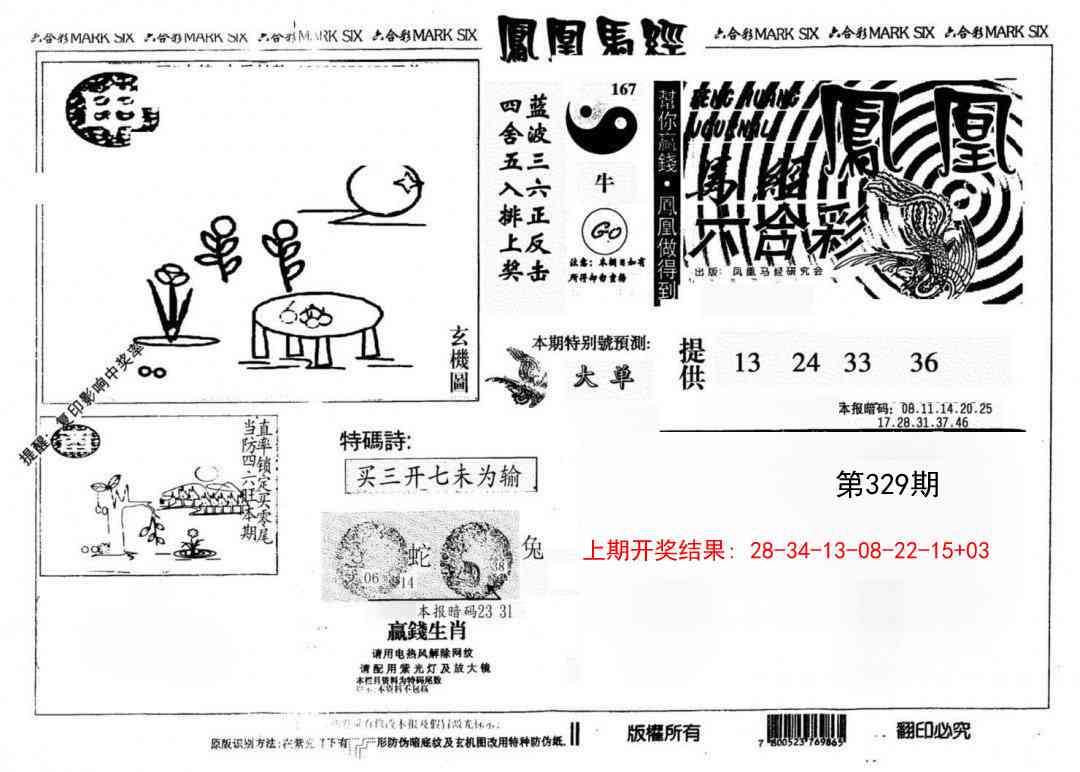 六合彩MARK SIX 六合彩MARK SIX 六合彩MARK SIX 六合彩MARK SIX
鳳凰馬經
六合彩MARK SIX 六合彩MARK SIX 六合彩MARK SIX
玄機圖
提醒:复印影响中奖率
蓝波三六正反击
四舍五入排上奖
167
牛
GO
注意:本期日如有
所得却勿重播
幫你贏錢·鳳凰做得到
FENG HUANG
JOURNAL
鳳凰
馬經
六合彩
出版:凤凰马经研究会
本期特别號預測:
大单
提供
13 24 33 36
本报暗码:08.11.14.20.25
17.28.31.37.46
直率锁定买零尾
当防四六旺本期
特碼詩:
买三开七未为输
蛇
兔
06
14
38
本报暗码23 31
贏錢生肖
请用电热风解除网纹
请配用紫光灯及放大镜
本栏目资料为特码尾数
第329期
上期开奖结果: 28-34-13-08-22-15+03
原版识别方法:
形防伪暗底纹及玄机图改用特种防伪纸.
版權所有
7 800523 769865
翻印必究